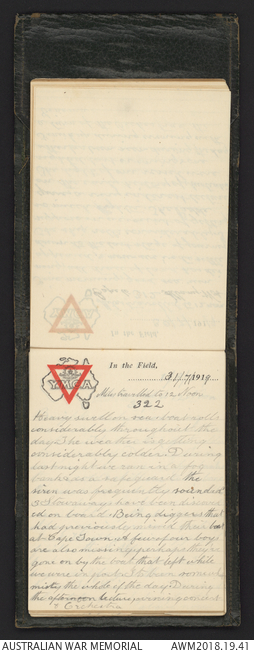 In the Field,
31/7/1919
YMCA
Miles travelled to 12 Noon
322
Heavy swell on sea & boat rolls
considerably throughout the
day. The weather is getting
considerably colder. During
last night we ran in a fog
bank & as a safeguard the
siren was frequently sounded
3 Stowaways have been discover
ed on board. Being diggers that
had previously missed their boat
at Cape Town. A few of our boys
are also missing perhaps they've
gone on by the boat that left while
we were in port.
misty the whole of the day. During
the afternoon lecture, evening concert
& Orchestra
AUSTRALIAN WAR MEMORIAL
AWM2018.19.41